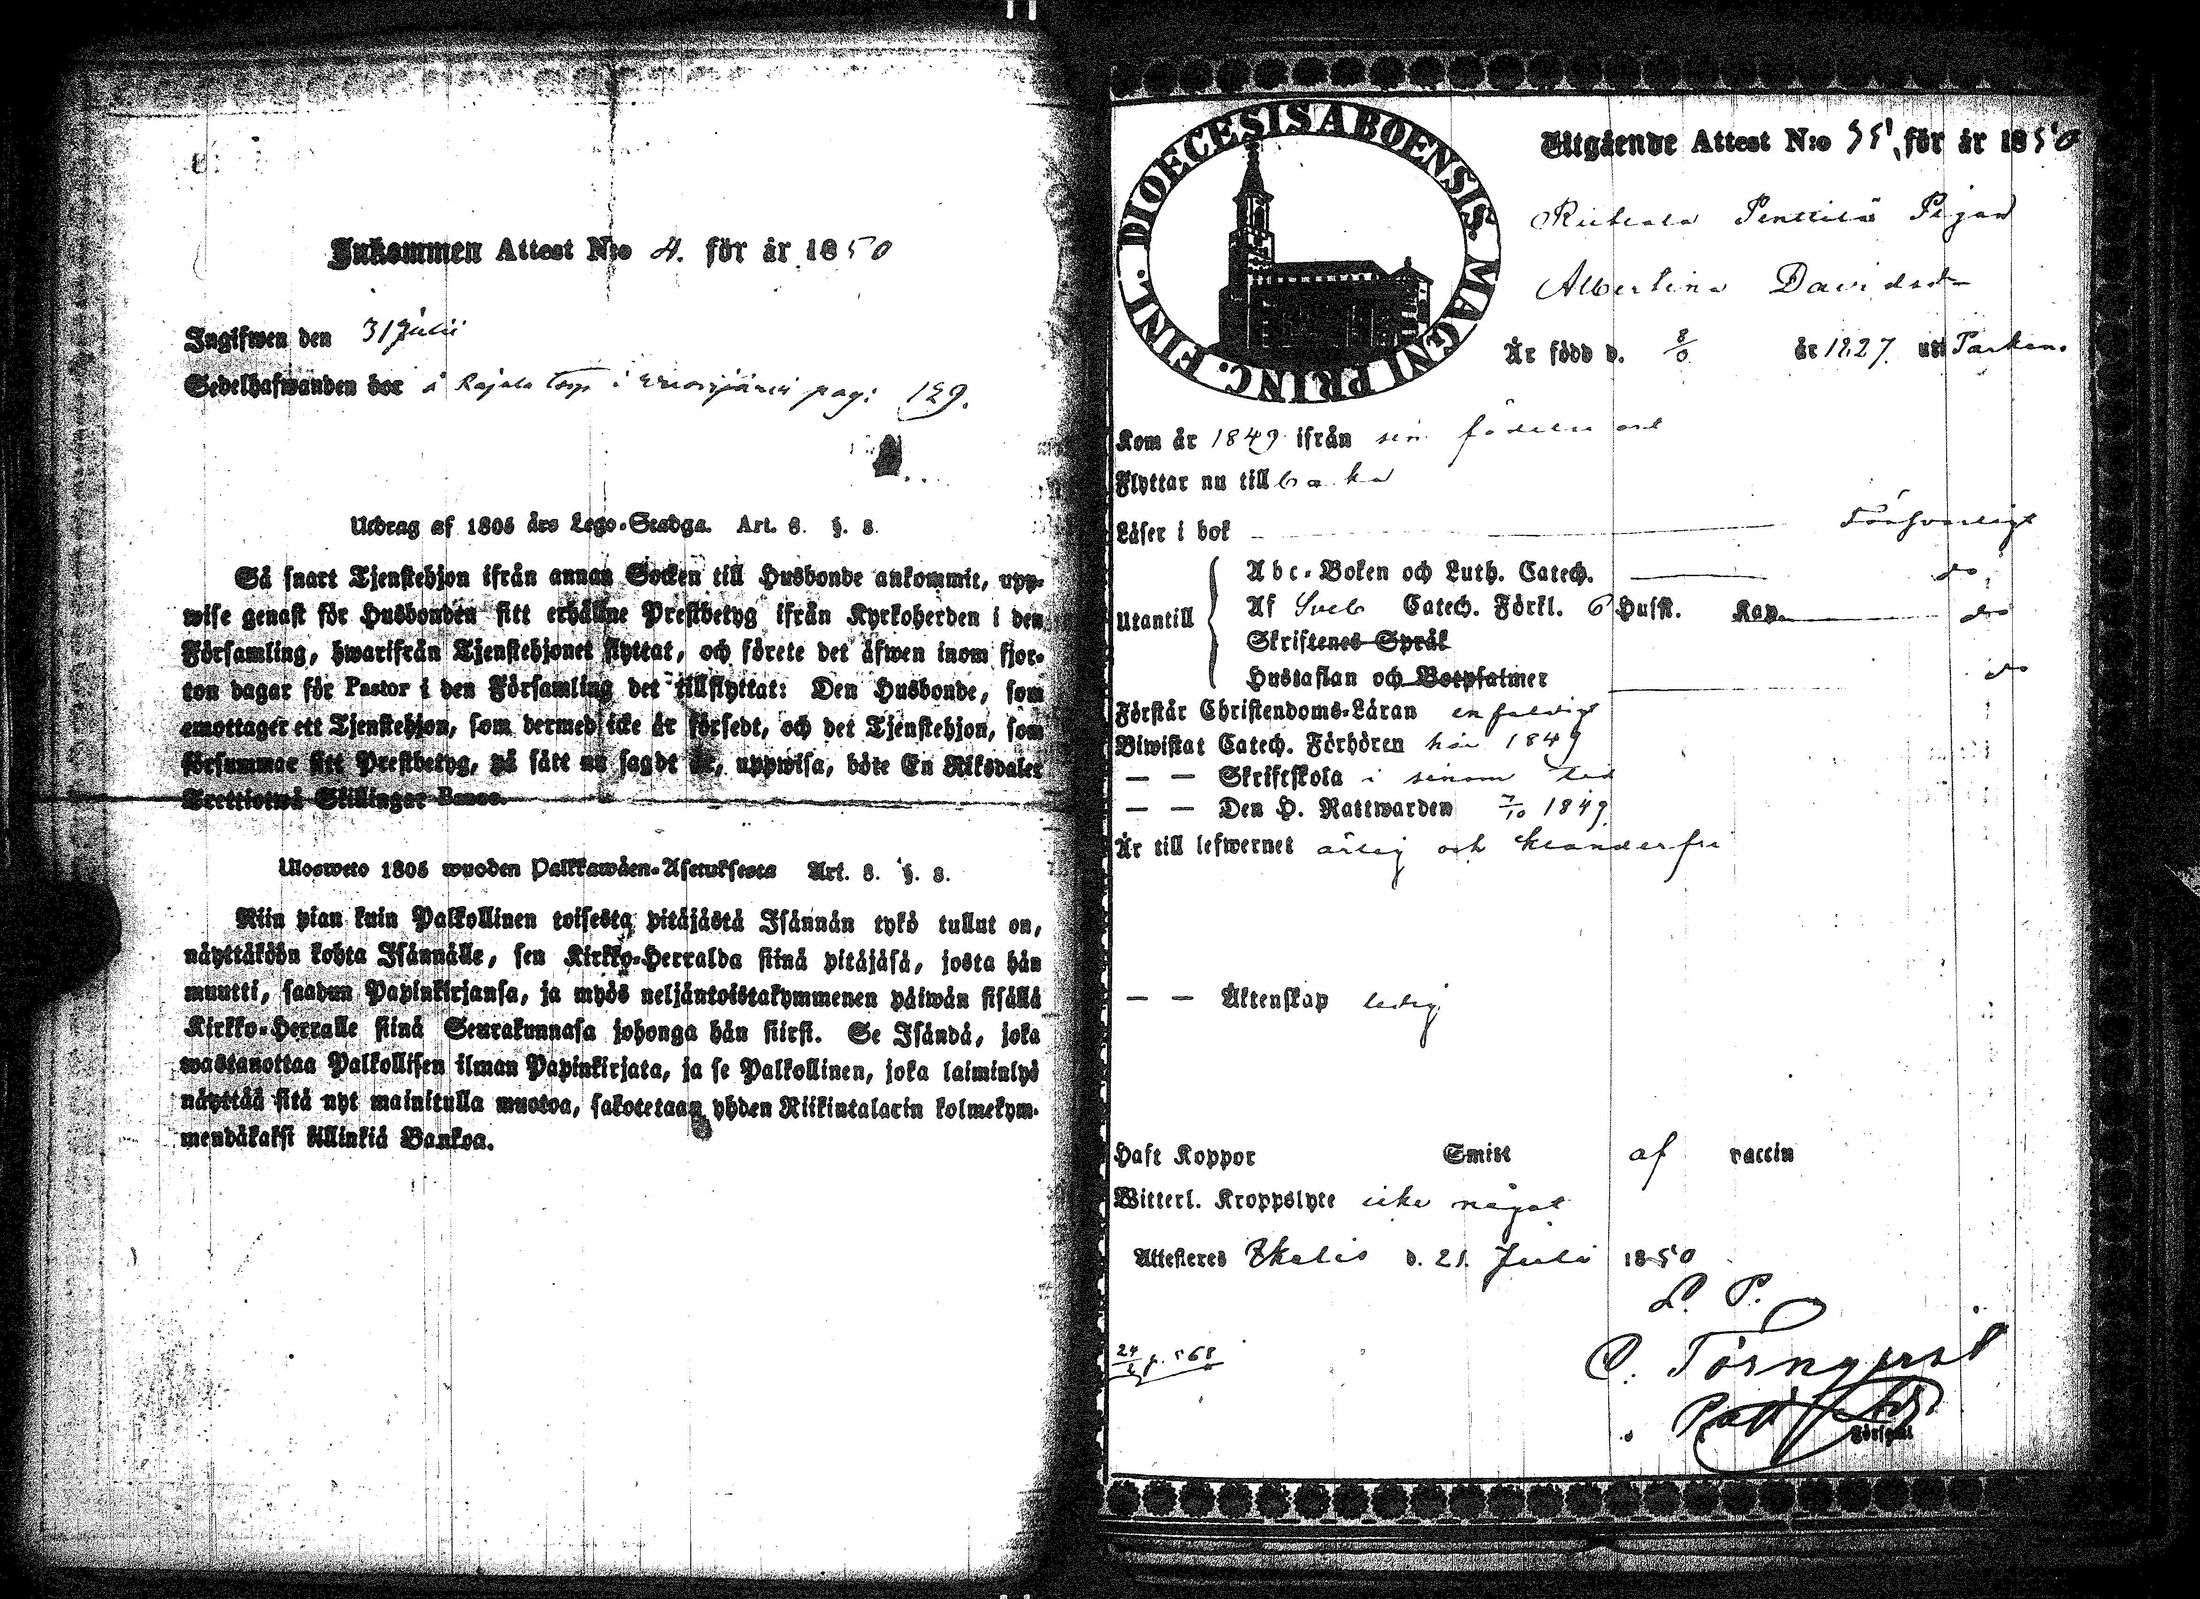 Inkommen Attest N:o 4. för år 1850
Ingifwen den 31 Julii
Sedelhafwanden bor å Rajala torp i pag: 129.
Utdrag af 1805 års Lego-Stadga. Art. 8. §. 8.
Så snart Tjenstehjon ifrån annan Socken till Husbonde ankommit, upp-
wise genast för Husbonden sitt erhållne Prestbetyg ifrån Kyrkoherden i den
Församling, hwarifrån Tjenstehjonet flyttat, och förete det äfwen inom fjor-
ton dagar för Pastor i den Församling det tillflyttat: Den Husbonde, som
emottager ett Tjenstehjon, som dermed icke är försedt, och det Tjenstehjon, som
försummar sitt Prestbetyg, på sätt nu sagdt är, uppwisa, böte En Riksdaler
Trettiotwå Skillingar Banco.
Ulosweto 1805 wuoden Palkkawäen-Asetuksesta Art. 8. §. 8.
Niin pian kuin Palkollinen toisesta pitäjästä Isännän tykö tullut on,
näyttäköön kohta Isännälle, sen Kirkko-Herralda siinä pitäjäsä, josta hän
muutti, saadun Papinkirjansa, ja myös neljäntoistakymmenen päiwän sisällä
Kirkko-Herralle siinä Seurakunnasa johonga hän siirsi. Se Isändä, joka
wastanottaa Palkollisen ilman Papinkirjata, ja se Palkollinen, joka laiminlyö
näyttää sitä nyt mainitulla muotoa, sakotetaan yhden Riikintalarin kolmekym-
mendäkaksi killinkiä Bankoa.
DIOECESIS ABOENSIS. MAGNI PRINC. FINL.
Utgående Attest N:o 55, för år 1850
Penttilä Pigan
Albertina Davidsd
Är född d. 8/9 år 1827. uti Parkan.
Kom år 1849 ifrån sin födelse ort
Flyttar nu till baka
Läser i bok Försvarligt
Utantill
Abc-Boken och Luth. Catech. do
Af Sveb Catech. Förkl. 6 Husst. Kap. do
Skriftenes Språk
Hustaflan och Botpsalmer do
Förstår Christendoms-Läran enfaldigt
Biwistat Catech. Förhören här 1849
— — Skriftskola i sinom tid
— — Den H. Nattwarden 7/10 1849
Är till lefwernet ärlig och klanderfri
— — Äktenskap ledig
Haft Koppor Smitt af vaccin
Witterl. Kroppslyte icke något
Attesteras Ikalis d. 21. Juli 1850
L. P.
C. Törnqvist
24/2 p. 568
Församl